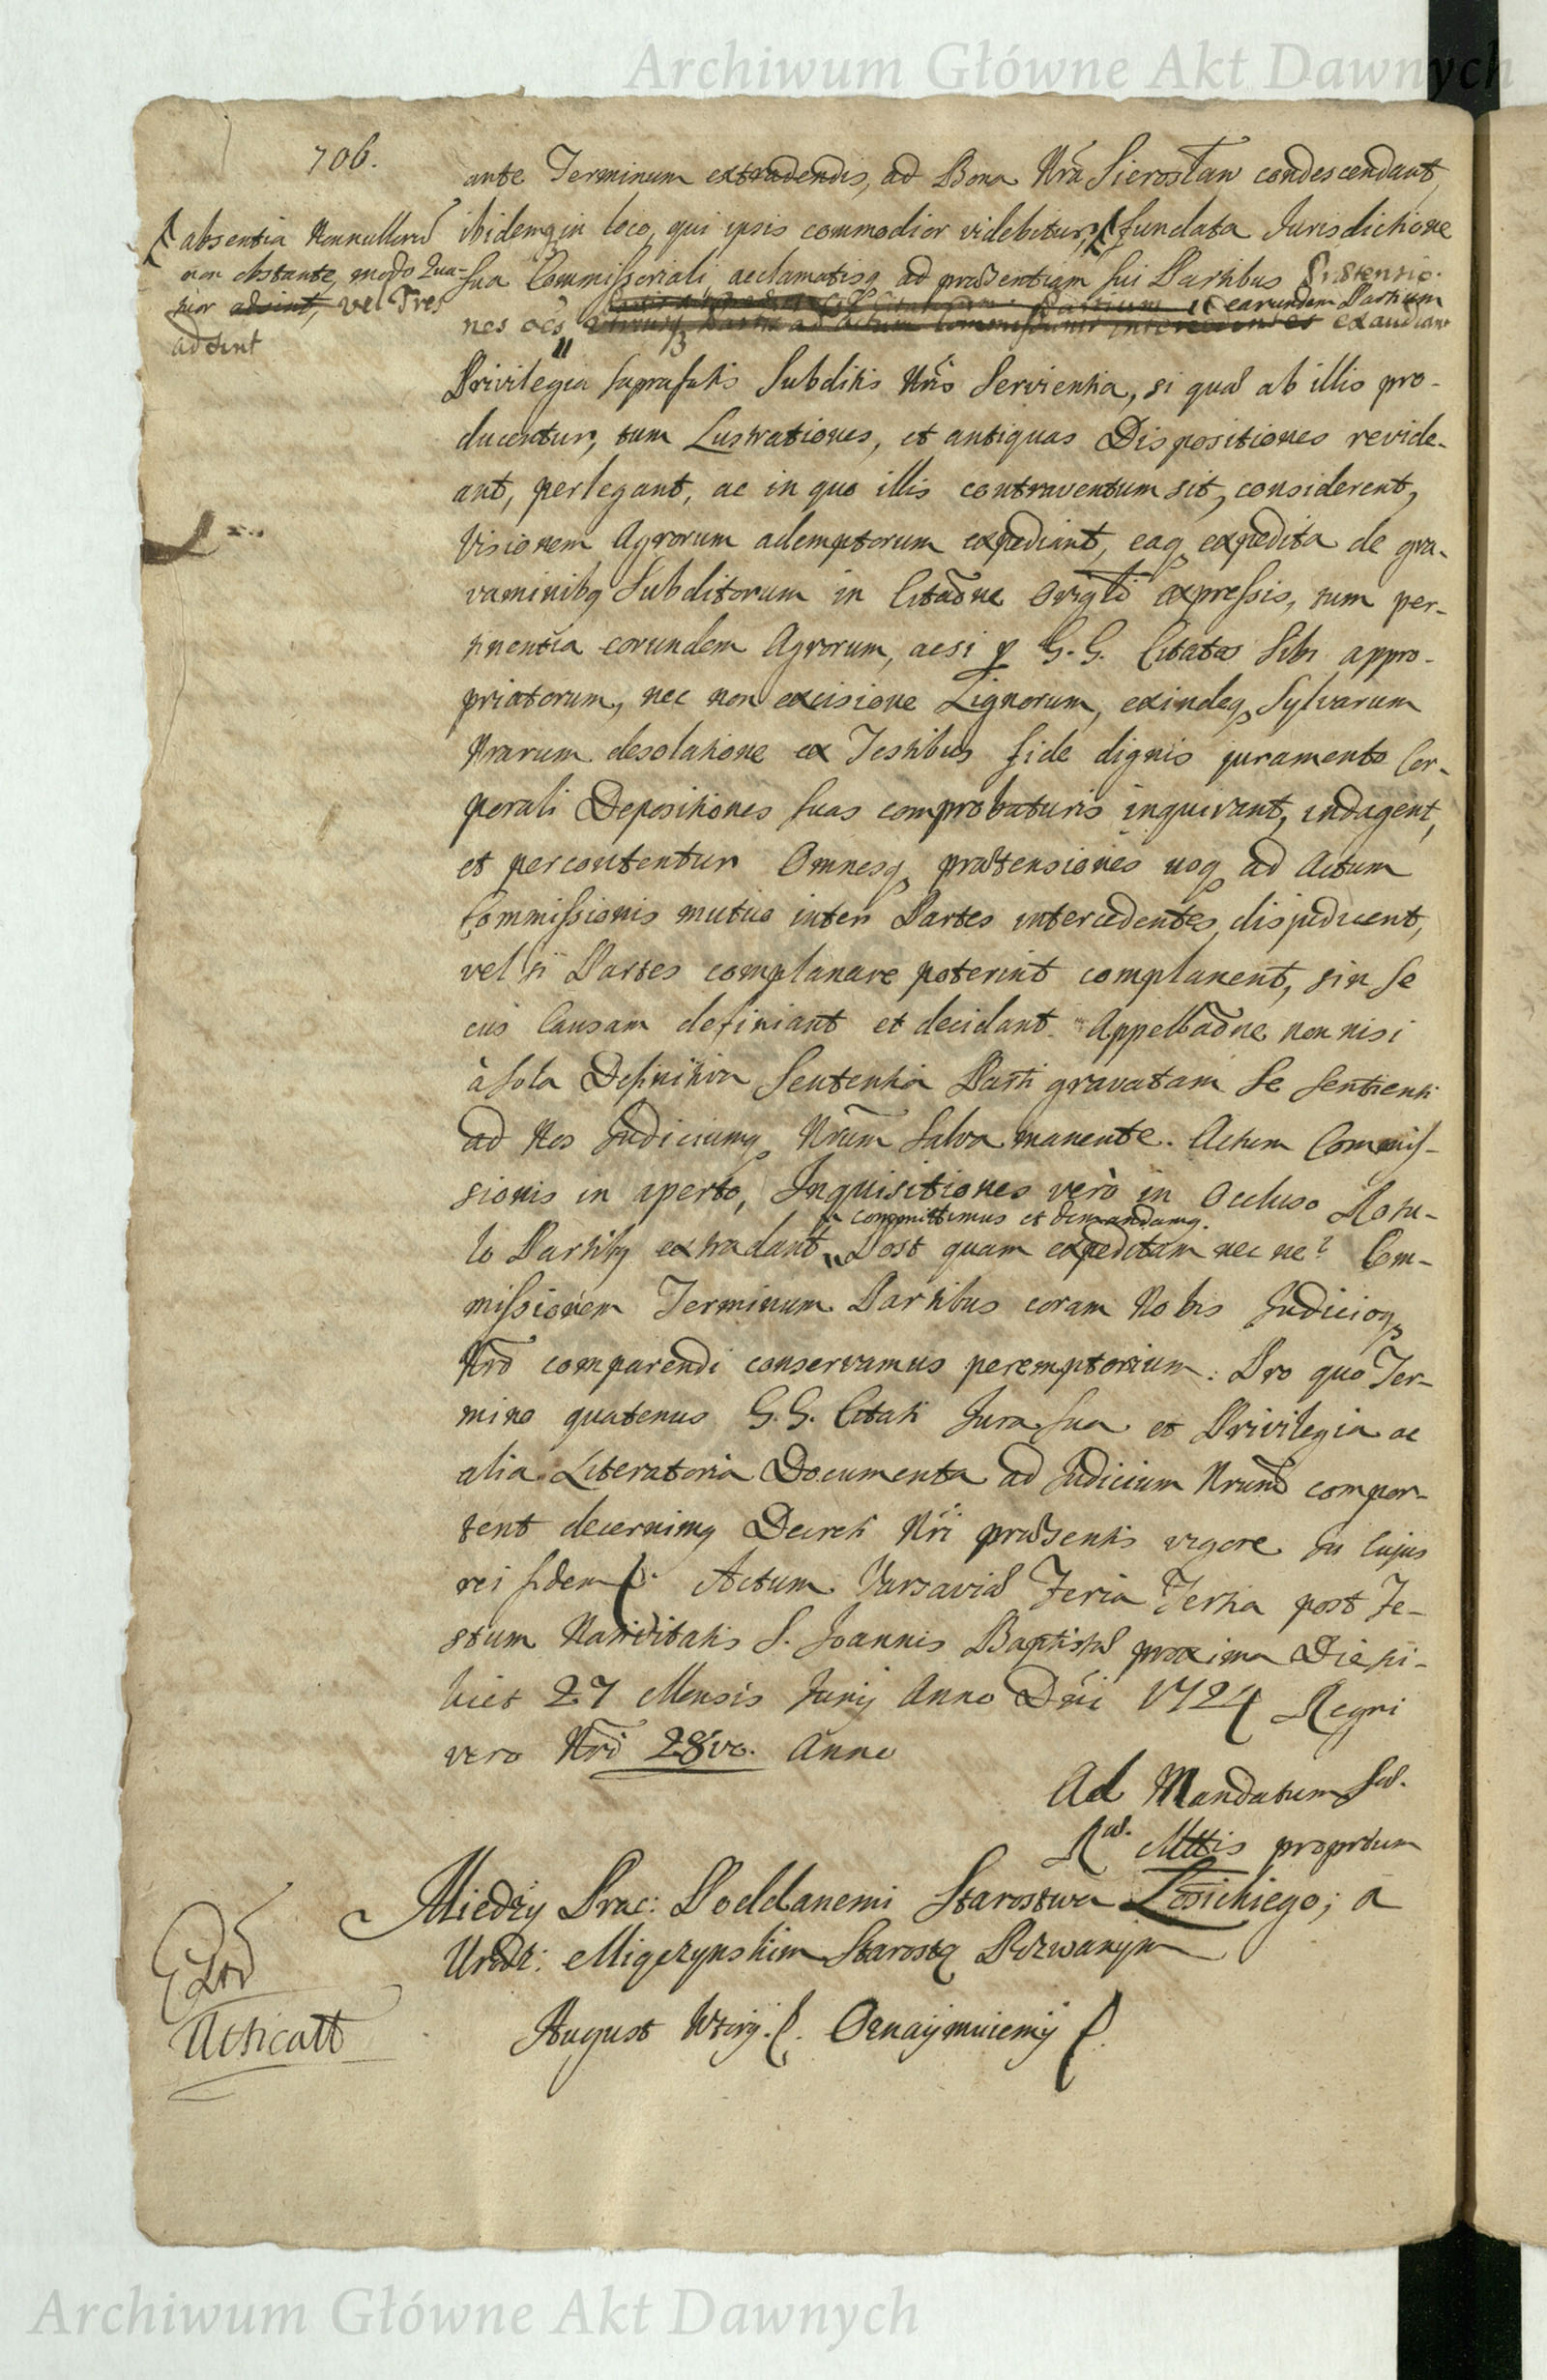 Archiwum Główne Akt Dawnych
706.
ante Terminum extradendis, ad Bona Nra Sierostaw condescendant,
ibidemq in loco, qui ipsis commodior videbitur, fundata Jurisdictione
absentia Nonnulloru
non obstante, modo Qua-
tuor adsint, vel Tres
adsint
sua Commissoriali, acclamatisq ad præsentiam sui Partibus
nes oes earundem Partium
exaudiant
Privilegia suprafatis Subditis Nris Servientia, si quæ ab illis pro-
ducentur, tum Lustrationes, et antiquas Dispositiones revide-
ant, perlegant, ac in quo illis contraventum sit, considerent,
Visionem Agrorum ademptorum expediant, eaq expedita de gra-
vaminibq Subditorum in Citaõne Origli expressis, tum per-
tinentia eorundem Agrorum, acsi p G. G. Citatos Sibi appro-
priatorum, nec non excisione Lignorum, exindeq Sylvarum
Nrarum desolatione ex Testibus fide dignis juramento Cor-
porali Depositiones suas comprobaturis inquirant, indagent,
et percontentur Omnesq prætensiones usq ad Actum
Commissionis mutuo inter Partes intercedentes, disjudicent,
vel si Partes complanare poterint complanent, sin se
cus Causam definiant et decidant. Appellaõne non nisi
à sola Definitiva Sententia Parti gravatam se sentienti
ad Nos Judiciumq Nrum salva manente. Actum Commis-
sionis in aperto, Inquisitiones verò in Occluso Rotu-
committimus et demandamq.
lo Partibq extradant Post quam expeditam nec ne? Com-
missionem Terminum Partibus coram Nobis Judicioq
Nro comparendi conservamus peremptorium. Pro quo Ter-
mino quatenus G. G. Citati Jura sua et Privilegia ac
alia Literatoria Documenta ad Judicium Nrum compor-
tent decernimq Decreti Nri præsentis vigore In Cujus
rei fidem Actum Varsaviæ Feria Tertia post Fe-
stum Nativitatis S. Joannis Baptistæ proxima Die
27 Mensis Junij Anno Dni 1724 Regni
vero Nri 28vo. Anno
Ad Mandatum Sæ.
Ræ. Mttis proprium
Miedzy Prac: Poddanemi Starostwa Łosickiego; a
Urodz: Miączynskim Starostą Pozwanym
August Wtóry. Oznaymuiemy
Archiwum Główne Akt Dawnych